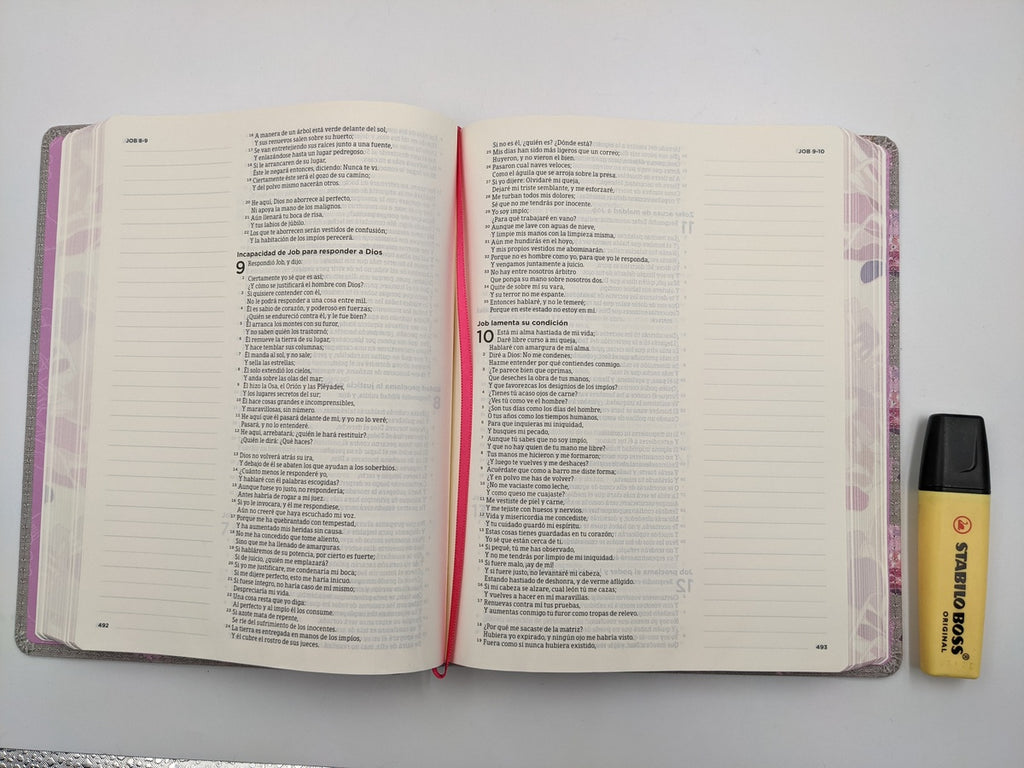 JOB 8-9
16 A manera de un árbol está verde delante del sol,
Y sus renuevos salen sobre su huerto;
17 Se van entretejiendo sus raíces junto a una fuente,
Y enlazándose hasta un lugar pedregoso.
18 Si le arrancaren de su lugar,
Éste le negará entonces, diciendo: Nunca te vi.
19 Ciertamente éste será el gozo de su camino;
Y del polvo mismo nacerán otros.
20 He aquí, Dios no aborrece al perfecto,
Ni apoya la mano de los malignos.
21 Aún llenará tu boca de risa,
Y tus labios de júbilo.
22 Los que te aborrecen serán vestidos de confusión;
Y la habitación de los impíos perecerá.
Incapacidad de Job para responder a Dios
9 Respondió Job, y dijo:
2 Ciertamente yo sé que es así;
¿Y cómo se justificará el hombre con Dios?
3 Si quisiere contender con él,
No le podrá responder a una cosa entre mil.
4 Él es sabio de corazón, y poderoso en fuerzas;
¿Quién se endureció contra él, y le fue bien?
5 Él arranca los montes con su furor,
Y no saben quién los trastornó;
6 Él remueve la tierra de su lugar,
Y hace temblar sus columnas;
7 Él manda al sol, y no sale;
Y sella las estrellas;
8 Él solo extendió los cielos,
Y anda sobre las olas del mar;
9 Él hizo la Osa, el Orión y las Pléyades,
Y los lugares secretos del sur;
10 Él hace cosas grandes e incomprensibles,
Y maravillosas, sin número.
11 He aquí que él pasará delante de mí, y yo no lo veré;
Pasará, y no lo entenderé.
12 He aquí, arrebatará; ¿quién le hará restituir?
¿Quién le dirá: ¿Qué haces?
13 Dios no volverá atrás su ira,
Y debajo de él se abaten los que ayudan a los soberbios.
14 ¿Cuánto menos le responderé yo,
Y hablaré con él palabras escogidas?
15 Aunque fuese yo justo, no respondería;
Antes habría de rogar a mi juez.
16 Si yo le invocara, y él me respondiese,
Aún no creeré que haya escuchado mi voz.
17 Porque me ha quebrantado con tempestad,
Y ha aumentado mis heridas sin causa.
18 No me ha concedido que tome aliento,
Sino que me ha llenado de amarguras.
19 Si habláremos de su potencia, por cierto es fuerte;
Si de juicio, ¿quién me emplazará?
20 Si yo me justificare, me condenaría mi boca;
Si me dijere perfecto, esto me haría inicuo.
21 Si fuese íntegro, no haría caso de mí mismo;
Despreciaría mi vida.
22 Una cosa resta que yo diga:
Al perfecto y al impío él los consume.
23 Si azote mata de repente,
Se ríe del sufrimiento de los inocentes.
24 La tierra es entregada en manos de los impíos,
Y él cubre el rostro de sus jueces.
492
JOB 9-10
Si no es él, ¿quién es? ¿Dónde está?
25 Mis días han sido más ligeros que un correo;
Huyeron, y no vieron el bien.
26 Pasaron cual naves veloces;
Como el águila que se arroja sobre la presa.
27 Si yo dijere: Olvidaré mi queja,
Dejaré mi triste semblante, y me esforzaré,
28 Me turban todos mis dolores;
Sé que no me tendrás por inocente.
29 Yo soy impío;
¿Para qué trabajaré en vano?
30 Aunque me lave con aguas de nieve,
Y limpie mis manos con la limpieza misma,
31 Aún me hundirás en el hoyo,
Y mis propios vestidos me abominarán.
32 Porque no es hombre como yo, para que yo le responda,
Y vengamos juntamente a juicio.
33 No hay entre nosotros árbitro
Que ponga su mano sobre nosotros dos.
34 Quite de sobre mí su vara,
Y su terror no me espante.
35 Entonces hablaré, y no le temeré;
Porque en este estado no estoy en mí.
Job lamenta su condición
10 Está mi alma hastiada de mi vida;
Daré libre curso a mi queja,
Hablaré con amargura de mi alma.
2 Diré a Dios: No me condenes;
Hazme entender por qué contiendes conmigo.
3 ¿Te parece bien que oprimas,
Que deseches la obra de tus manos,
Y que favorezcas los designios de los impíos?
4 ¿Tienes tú acaso ojos de carne?
¿Ves tú como ve el hombre?
5 ¿Son tus días como los días del hombre,
O tus años como los tiempos humanos,
6 Para que inquieras mi iniquidad,
Y busques mi pecado,
7 Aunque tú sabes que no soy impío,
Y que no hay quien de tu mano me libre?
8 Tus manos me hicieron y me formaron;
¿Y luego te vuelves y me deshaces?
9 Acuérdate que como a barro me diste forma;
¿Y en polvo me has de volver?
10 ¿No me vaciaste como leche,
Y como queso me cuajaste?
11 Me vestiste de piel y carne,
Y me tejiste con huesos y nervios.
12 Vida y misericordia me concediste,
Y tu cuidado guardó mi espíritu.
13 Estas cosas tienes guardadas en tu corazón;
Yo sé que están cerca de ti.
14 Si pequé, tú me has observado,
Y no me tendrás por limpio de mi iniquidad.
15 Si fuere malo, ¡ay de mí!
Y si fuere justo, no levantaré mi cabeza,
Estando hastiado de deshonra, y de verme afligido.
16 Si mi cabeza se alzare, cual león tú me cazas;
Y vuelves a hacer en mí maravillas.
17 Renuevas contra mí tus pruebas,
Y aumentas conmigo tu furor como tropas de relevo.
18 ¿Por qué me sacaste de la matriz?
Hubiera yo expirado, y ningún ojo me habría visto.
19 Fuera como si nunca hubiera existido,
493
STABILO BOSS®
ORIGINAL